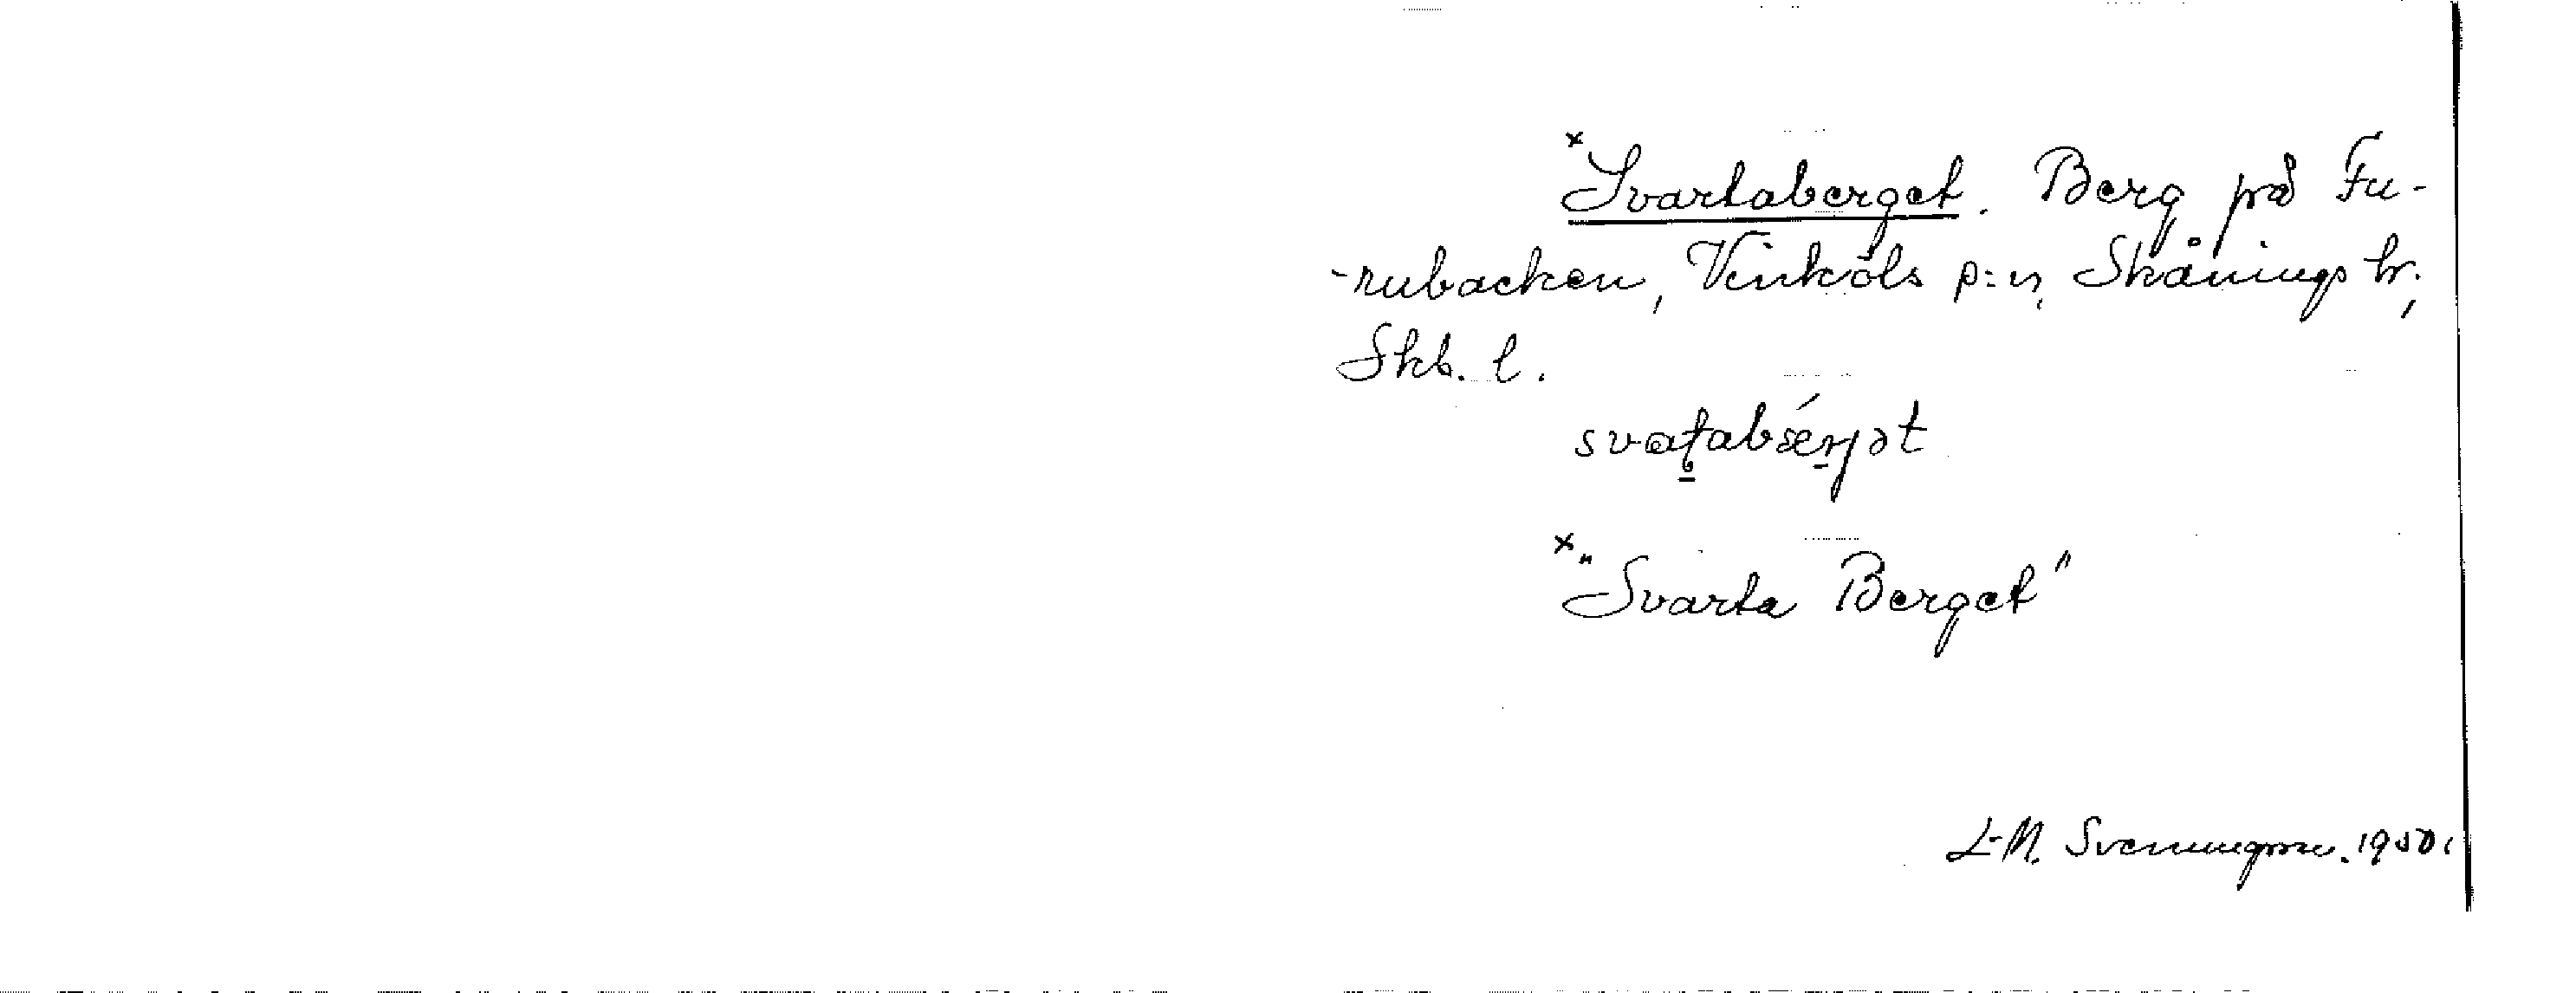 ˣSvartaberget. Berg på Fu-
-rubacken, Vinköls s:n, Skånings hr.,
Skb. l.
ˣ"Svarta Berget"
L-M. Svenningsson. 1950.